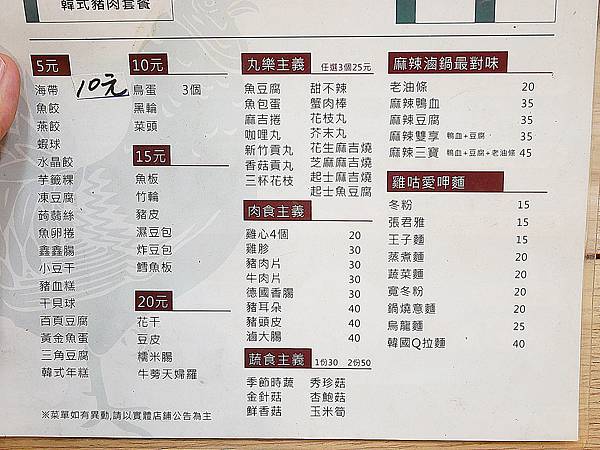 韓式豬肉套餐
5元
海帶 10元
魚餃
燕餃
蝦球
水晶餃
芋籤粿
凍豆腐
蒟蒻絲
魚卵捲
鑫鑫腸
小豆干
豬血糕
干貝球
百頁豆腐
黃金魚蛋
三角豆腐
韓式年糕
10元
鳥蛋 3個
黑輪
菜頭
15元
魚板
竹輪
豬皮
濕豆包
炸豆包
鱈魚板
20元
花干
豆皮
糯米腸
牛蒡天婦羅
※菜單如有異動,請以實體店鋪公告為主
丸樂主義 任選3個25元
魚豆腐 甜不辣
魚包蛋 蟹肉棒
麻吉捲 花枝丸
咖哩丸 芥末丸
新竹貢丸 花生麻吉燒
香菇貢丸 芝麻麻吉燒
三杯花枝 起士麻吉燒
起士魚豆腐
肉食主義
雞心4個 20
雞胗 30
豬肉片 30
牛肉片 30
德國香腸 30
豬耳朵 40
豬頭皮 40
滷大腸 40
蔬食主義 1份30 2份50
季節時蔬 秀珍菇
金針菇 杏鮑菇
鮮香菇 玉米筍
麻辣滷鍋最對味
老油條 20
麻辣鴨血 35
麻辣豆腐 35
麻辣雙享 鴨血+豆腐 35
麻辣三寶 鴨血+豆腐+老油條 45
雞咕愛呷麵
冬粉 15
張君雅 15
王子麵 15
蒸煮麵 20
蔬菜麵 20
寬冬粉 20
鍋燒意麵 20
烏龍麵 25
韓國Q拉麵 40